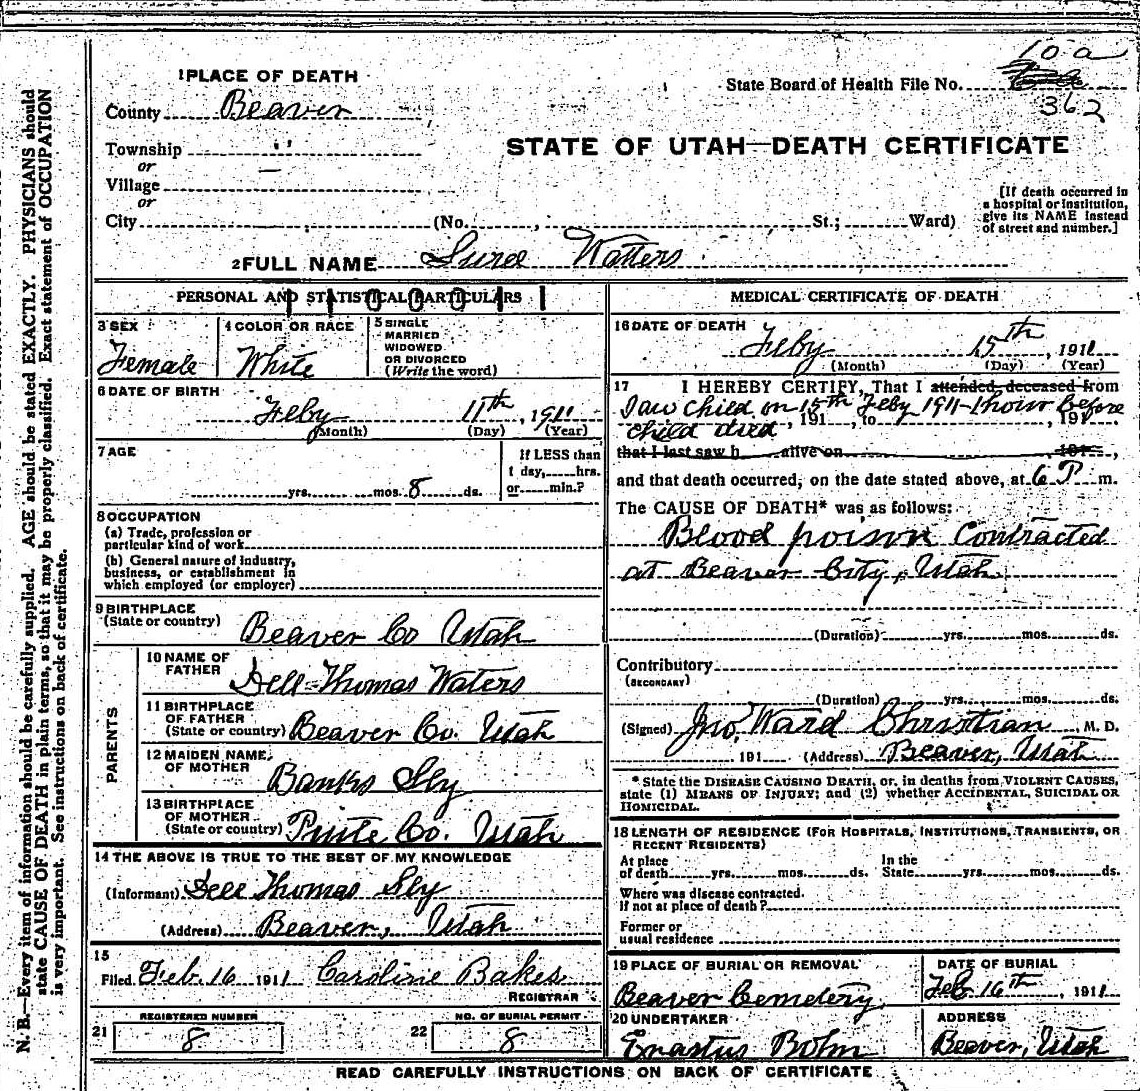 10 a
State Board of Health File No.
362
1 PLACE OF DEATH
County Beaver
STATE OF UTAH—DEATH CERTIFICATE
Township "
or
Village —
or
City (No. , St.; Ward)
[If death occurred in
a hospital or institution,
give its NAME instead
of street and number.]
2 FULL NAME Watters
PERSONAL AND STATISTICAL PARTICULARS
3 SEX
Female
4 COLOR OR RACE
White
5 SINGLE
MARRIED
WIDOWED
OR DIVORCED
(Write the word)
6 DATE OF BIRTH
Feby 11th, 1911
(Month) (Day) (Year)
7 AGE
yrs. mos. 8 ds.
If LESS than
1 day, hrs.
or min.?
8 OCCUPATION
(a) Trade, profession or
particular kind of work
(b) General nature of industry,
business, or establishment in
which employed (or employer)
9 BIRTHPLACE
(State or country)
Beaver Co Utah
PARENTS
10 NAME OF
FATHER
Dell Thomas Waters
11 BIRTHPLACE
OF FATHER
(State or country) Beaver Co. Utah
12 MAIDEN NAME
OF MOTHER
Banks Sly
13 BIRTHPLACE
OF MOTHER
(State or country) Piute Co. Utah
14 THE ABOVE IS TRUE TO THE BEST OF MY KNOWLEDGE
(Informant) Dell Thomas Sly
(Address) Beaver, Utah
15
Filed Feb. 16 1911 Caroline Bakes
REGISTRAR
21 REGISTERED NUMBER
8
22 NO. OF BURIAL PERMIT
8
MEDICAL CERTIFICATE OF DEATH
16 DATE OF DEATH
Feby 15th, 1911
(Month) (Day) (Year)
17 I HEREBY CERTIFY, That I attended, deceased from
Saw child on 15th Feby 1911-1 hour before
child died, 191 , to , 191
that I last saw h alive on 191 ,
and that death occurred, on the date stated above, at 6 P m.
The CAUSE OF DEATH* was as follows:
Blood poison Contracted
at Beaver City, Utah
(Duration) yrs. mos. ds.
Contributory
(SECONDARY)
(Duration) yrs. mos. ds.
(Signed) Jno. Ward Christian M. D.
191 (Address) Beaver, Utah
* State the DISEASE CAUSING DEATH, or, in deaths from VIOLENT CAUSES,
state (1) MEANS OF INJURY; and (2) whether ACCIDENTAL, SUICIDAL OR
HOMICIDAL.
18 LENGTH OF RESIDENCE (FOR HOSPITALS, INSTITUTIONS, TRANSIENTS, OR
RECENT RESIDENTS)
At place
of death yrs. mos. ds.
In the
State yrs. mos. ds.
Where was disease contracted.
If not at place of death?
Former or
usual residence
19 PLACE OF BURIAL OR REMOVAL
Beaver Cemetery
DATE OF BURIAL
Feb 16th, 1911
20 UNDERTAKER
Erastus Bohn
ADDRESS
Beaver, Utah
READ CAREFULLY INSTRUCTIONS ON BACK OF CERTIFICATE
N. B.—Every item of information should be carefully supplied. AGE should be stated EXACTLY. PHYSICIANS should
state CAUSE OF DEATH in plain terms, so that it may be properly classified. Exact statement of OCCUPATION
is very important. See instructions on back of certificate.